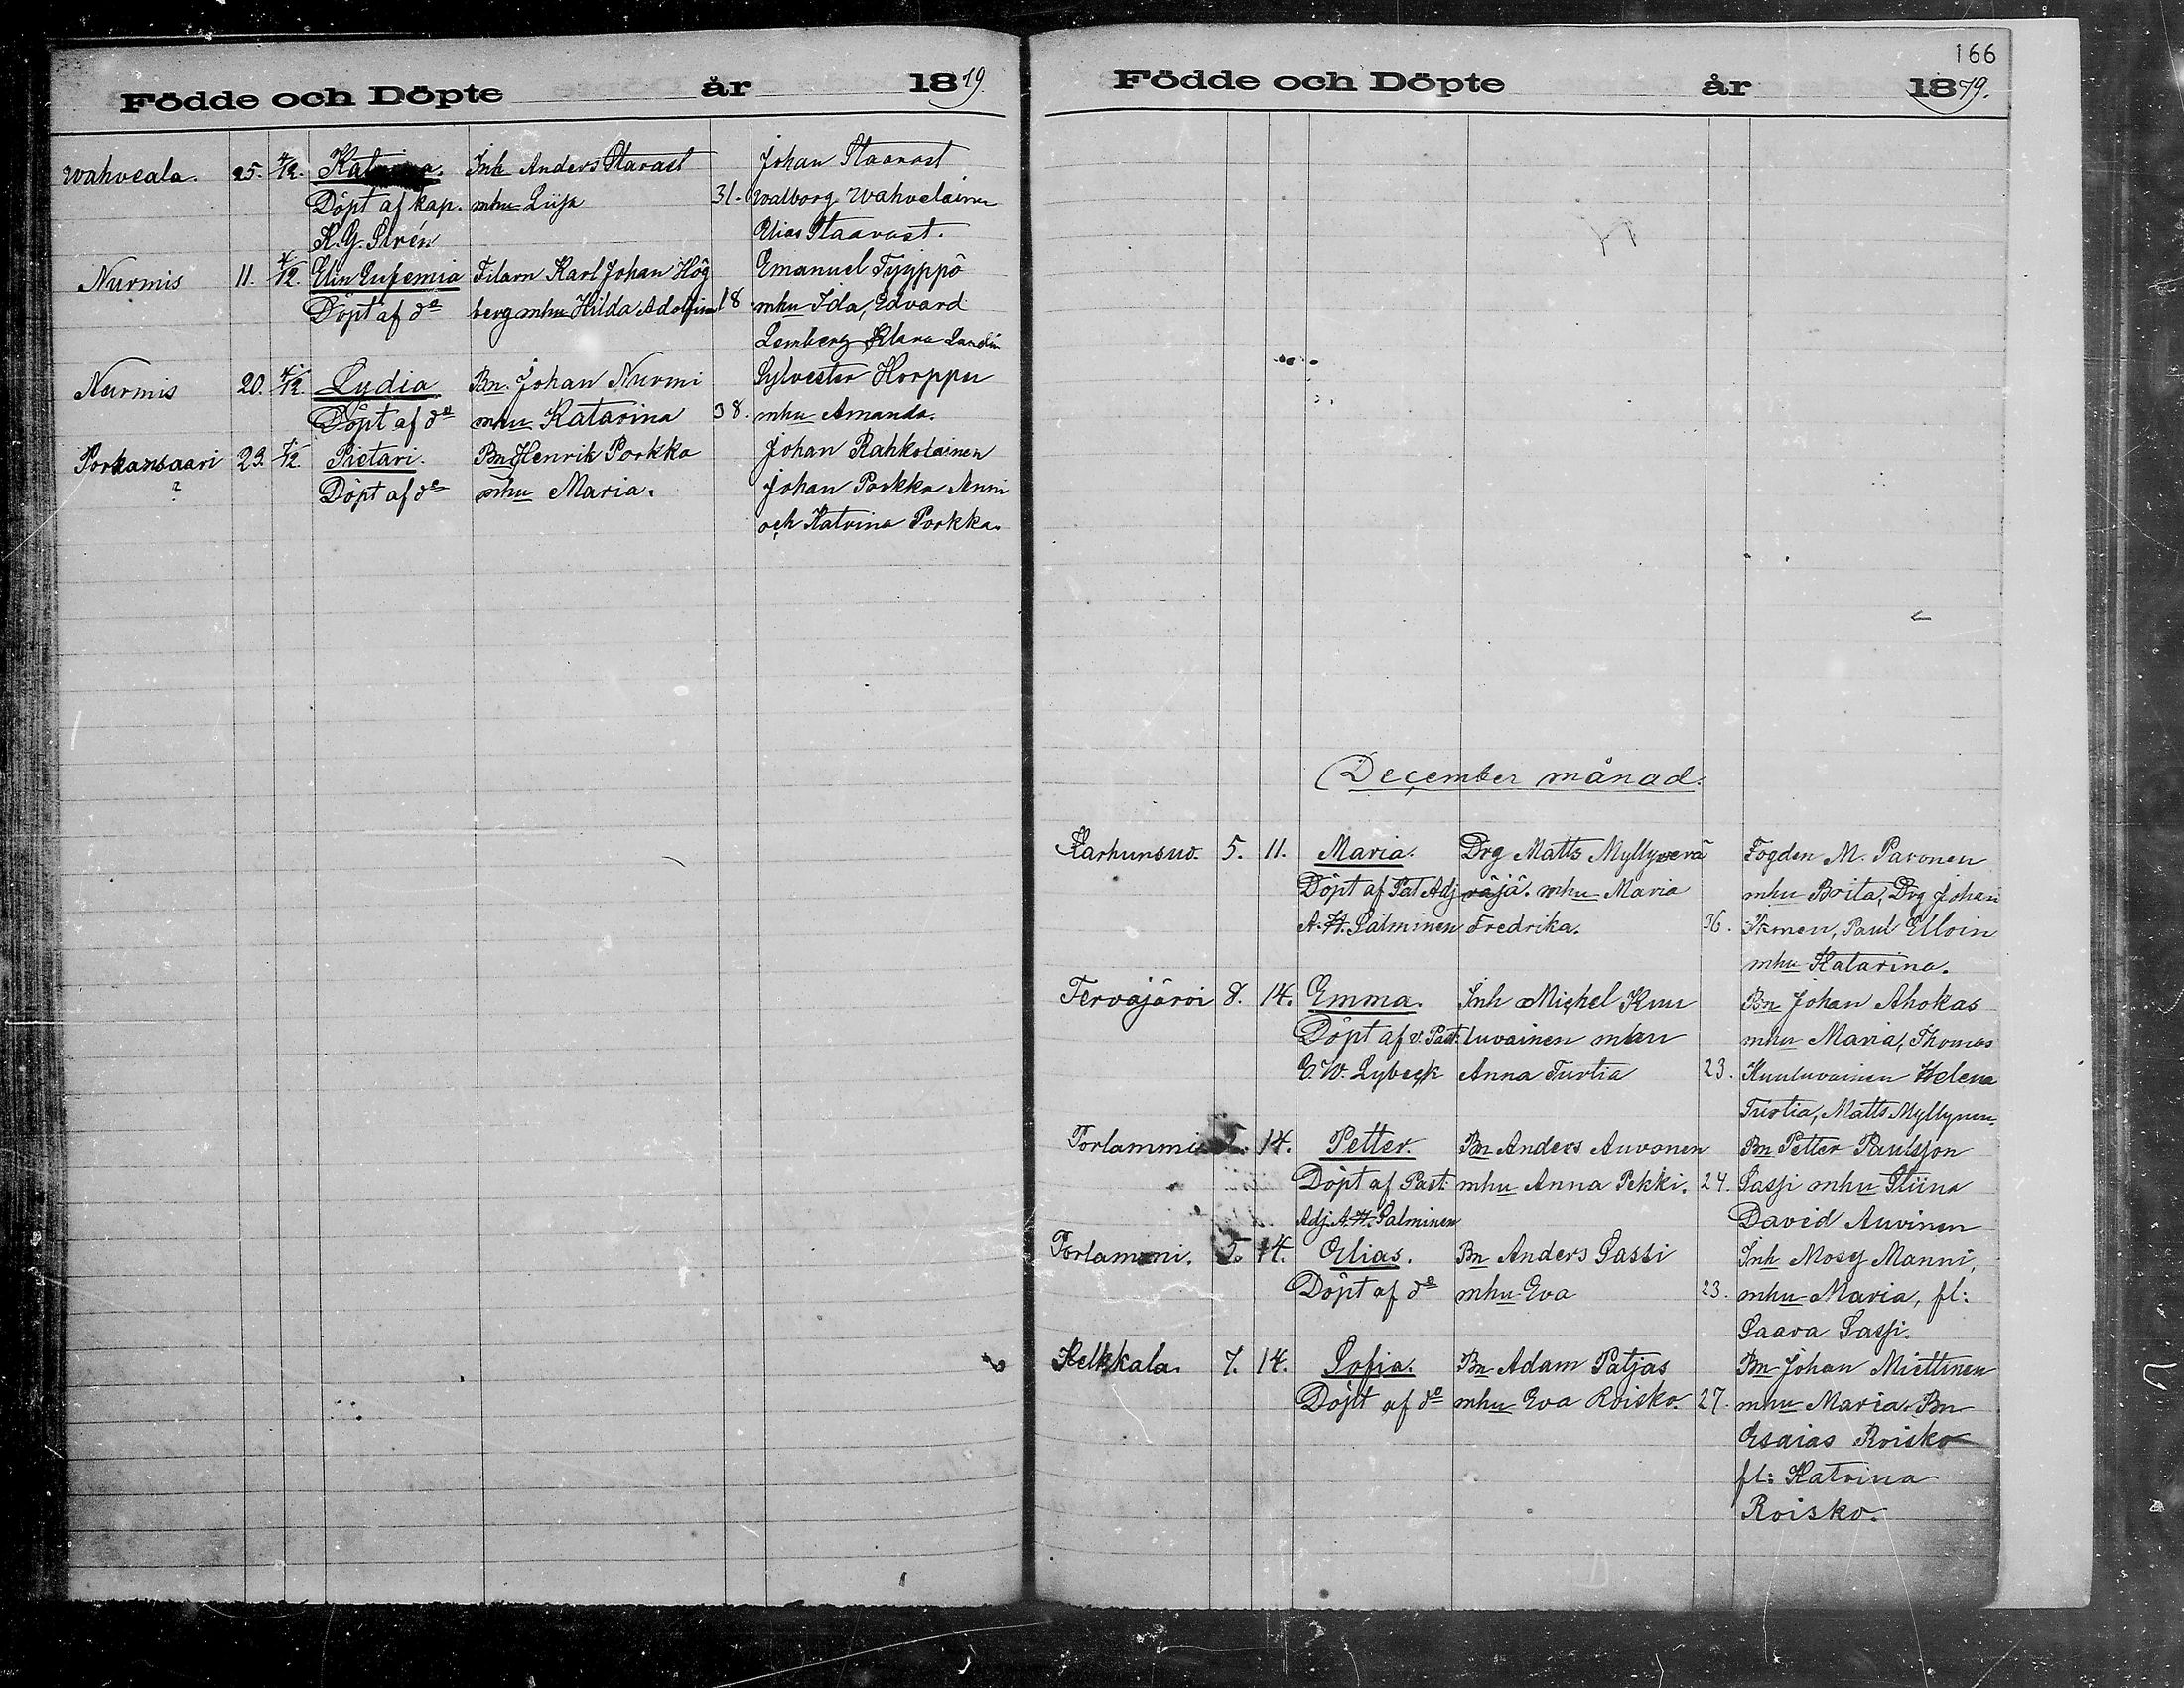 Födde och Döpte år 1879.
Wahveala. 25. 4/12. Katrina. Inh Anders Starast Johan Staarast
Döpt af kap. mhu Liisa 31. Walborg Wahvelainen
K. G. Sirén Elias Staarast.
Nurmis 11. 4/12. Elin Eufemia Filarn Karl Johan Hög Emanuel Tyyppö
Döpt af do berg mhu Hilda Adolfina 18 mhu Ida, Edvard
Lemberg Klara Sandin
Nurmis 20. 4/12. Lydia Bn. Johan Nurmi Sylvester Horppu
Döpt af do mhu Katarina 38. mhu Amanda.
Porkansaari 23. 7/12. Pietari. Bn Henrik Porkka Johan Rahkolainen
? Döpt af do mhu Maria. Johan Porkka Anni
och Katrina Porkka.
166
Födde och Döpte år 1879.
December månad.
Karhunsuo. 5. 11. Maria. Drg Matts Myllyverä Fogden M. Paronen
Döpt af Past Adj räjä. mhu Maria mhu Brita, Drg Johan
A. H. Salminen Fredrika. 36. Ikonen, Paul Elloin
mhu Katarina.
Tervajärvi 8. 14. Emma. Inh Michel Kuu Bn Johan Ahokas
Döpt af v. Past. luvainen mhu mhu Maria, Thomas
G. W. Lybeck Anna Turtia 23. Kuuluvainen Helena
Turtia, Matts Myllynen.
Porlammi 14. Petter. Bn Anders Auvonen Bn Petter Paulsson
Döpt af Past mhu Anna Pekki. 24. Sassi mhu Stiina
Adj. A. H. Salminen David Auvinen
Porlammi. 5. 14. Elias. Bn Anders Sassi Inh Mosy Manni,
Döpt af do mhu Eva 23. mhu Maria, fl:
Saara Sassi.
Kelkkala. 7. 14. Sofia. Bn Adam Patjas Bn Johan Miettinen
Döpt af do mhu Eva Roisko. 27. mhu Maria. Bn
Esaias Roisko
fl: Katrina
Roisko.